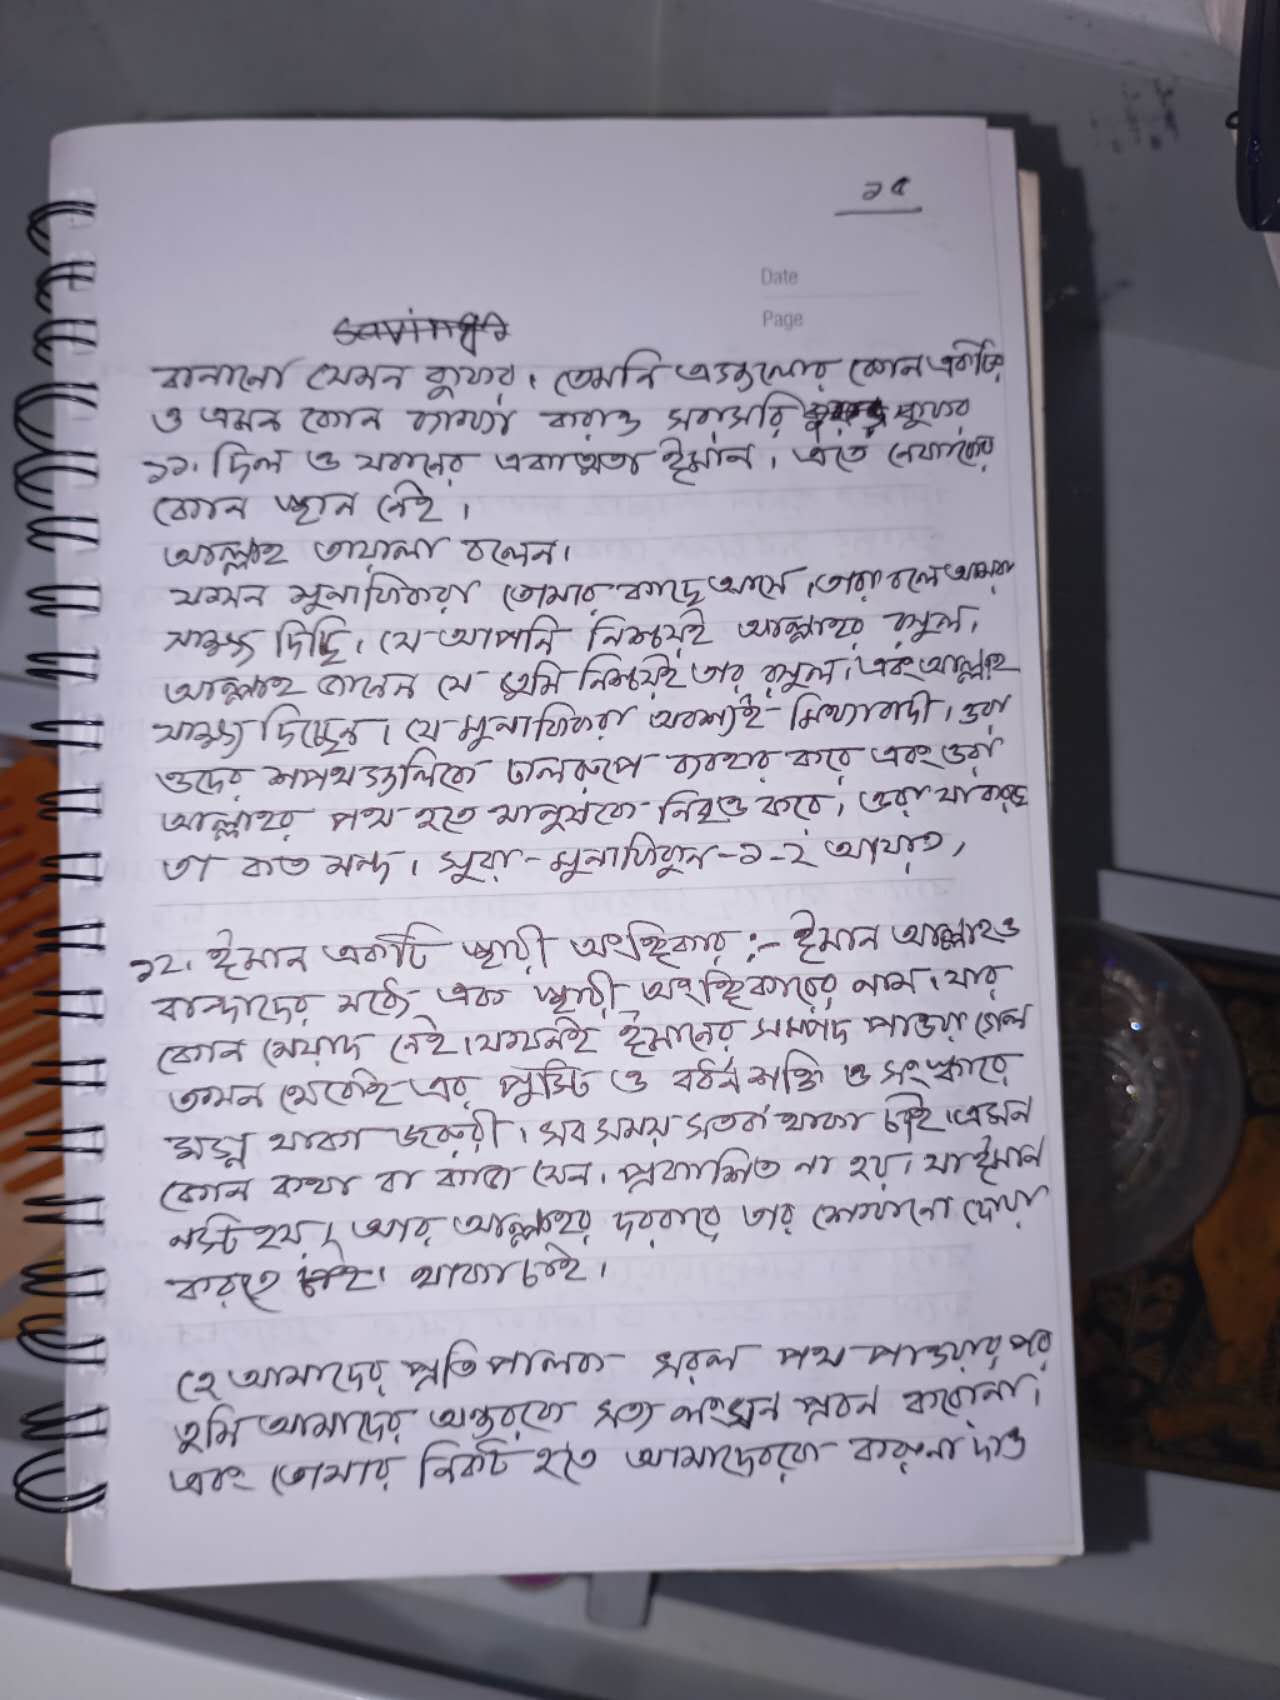 ১৫
Date
Page
বানানো যেমন কুফর। তেমনি এগুলোর কোন একটির
ও এমন কোন ব্যাখ্যা করাও সরাসরি কুফর
১১। দিল ও যবানের একাত্মতা ঈমান। এতে নেফাকের
কোন স্থান নেই।
আল্লাহ তায়ালা বলেন।
যখন মুনাফিকরা তোমার কাছে আসে। তারা বলে আমরা
সাক্ষ্য দিচ্ছি। যে আপনি নিশ্চয়ই আল্লাহর রসুল।
আল্লাহ জানেন যে তুমি নিশ্চয়ই তার রসুল। এবং আল্লাহ
সাক্ষ্য দিচ্ছেন। যে মুনাফিকরা অবশ্যই মিথ্যাবাদী। ওরা
ওদের শপথগুলিকে ঢালরুপে ব্যবহার করে এবং ওরা
আল্লাহর পথ হতে মানুষকে নিবৃত্ত করে। ওরা যা করছে
তা কত মন্দ। সুরা - মুনাফিকুন - ১-২ আয়াত,
১২। ঈমান একটি স্থায়ী অংঙ্গিকার :- ঈমান আল্লাহ ও
বান্দাদের মধ্যে এক স্থায়ী অংঙ্গিকারের নাম। যার
কোন মেয়াদ নেই। যখনই ঈমানের সম্পদ পাওয়া গেল
তখন থেকেই এর পুস্টি ও বর্ধন শক্তি ও সংস্কারে
মগ্ন থাকা জরুরী। সব সময় সতর্ক থাকা চাই। এমন
কোন কথা বা কাজ যেন। প্রকাশিত না হয়। যা ঈমান
নস্ট হয়। আর আল্লাহর দরবারে তার শেখানো দোয়া
করতে থাকা চাই।
হে আমাদের প্রতিপালক সরল পথ পাওয়ার পর
তুমি আমাদের অন্তরকে সত্য লংঘন প্রবন করোনা।
এবং তোমার নিকট হতে আমাদেরকে করুনা দাও